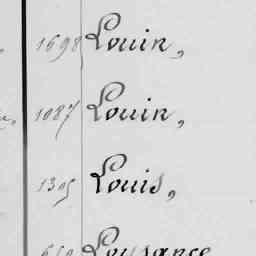 1698 Louin,
1087 Louin,
1305 Louis,
Loysance